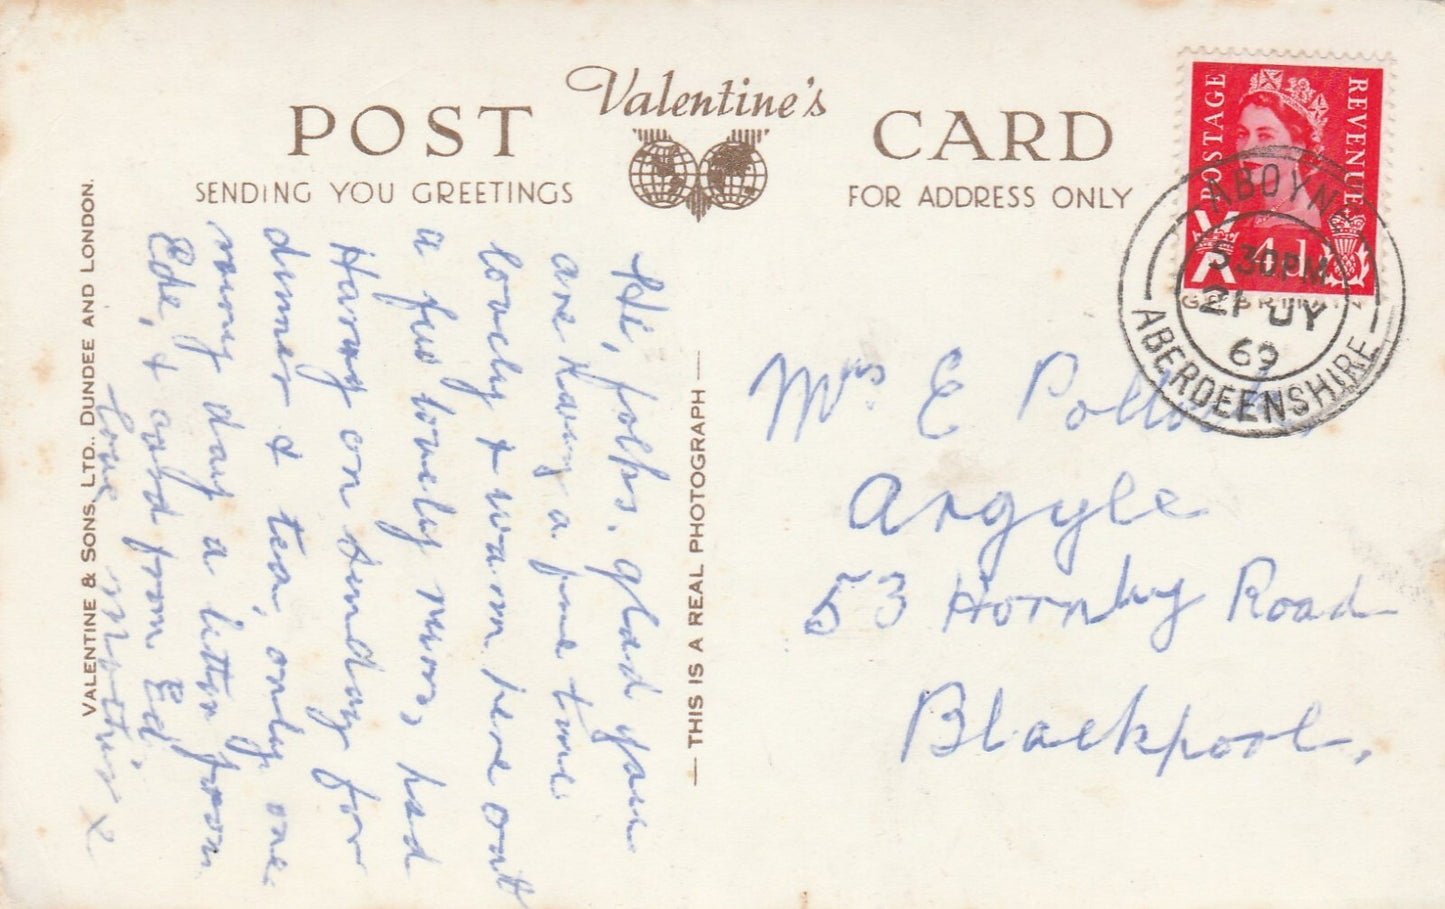 POST
Valentine's
CARD
SENDING YOU GREETINGS
FOR ADDRESS ONLY
POSTAGE
REVENUE
4d
ABOYNE
5 30PM
21 JY
69
ABERDEENSHIRE
Hi, folks, glad you
are having a fine time
lovely & warm here out
a few lovely runs, had
Harry on Sunday for
dinner & tea, only one
rainy day a letter from
Ede, & card from Ed
love
x
Mrs E
Argyle
53 Hornby Road
Blackpool,
THIS IS A REAL PHOTOGRAPH
VALENTINE & SONS. LTD., DUNDEE AND LONDON.